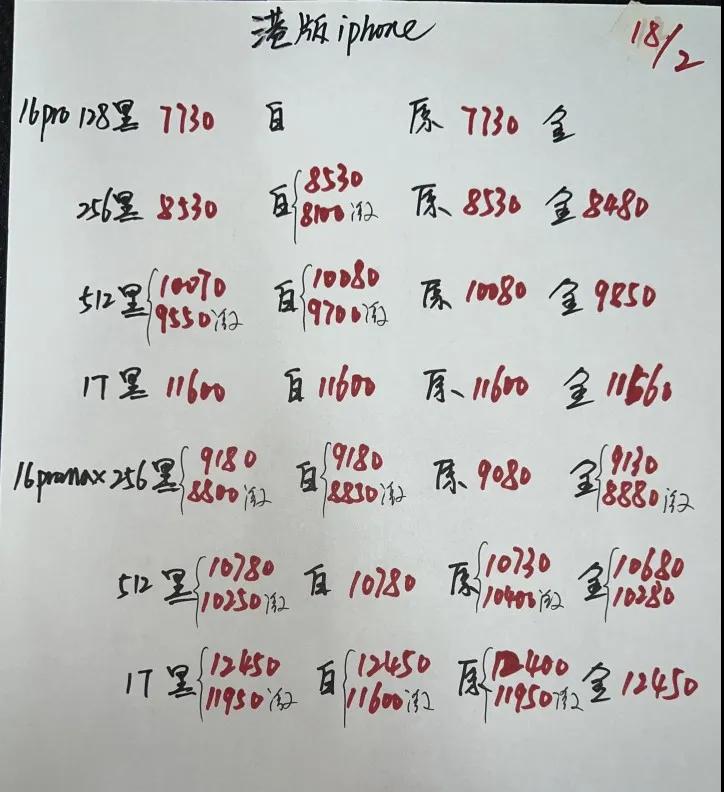 港版iphone 18/2
16pro 128黑 7730 白 原 7730 金
256黑 8530 白 8530 原 8530 金 8480
8100激
512黑 10070 白 10080 原 10080 金 9850
9550激 9700激
1T黑 11600 白 11600 原 11600 金 11560
16promax 256黑 9180 白 9180 原 9080 金 9130
8800激 8850激 8880激
512黑 10780 白 10780 原 10730 金 10680
10250激 10400激 10280
1T黑 12450 白 12450 原 12400 金 12450
11950激 11600激 11950激